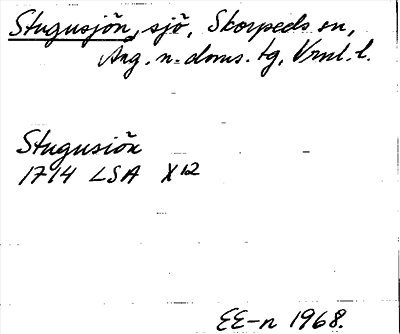 Stugusjön, sjö, Skorpeds sn,
Ång. n. doms. tg, Vrnl. l.
Stugusiön
1714 LSA X12
EE-n 1968.